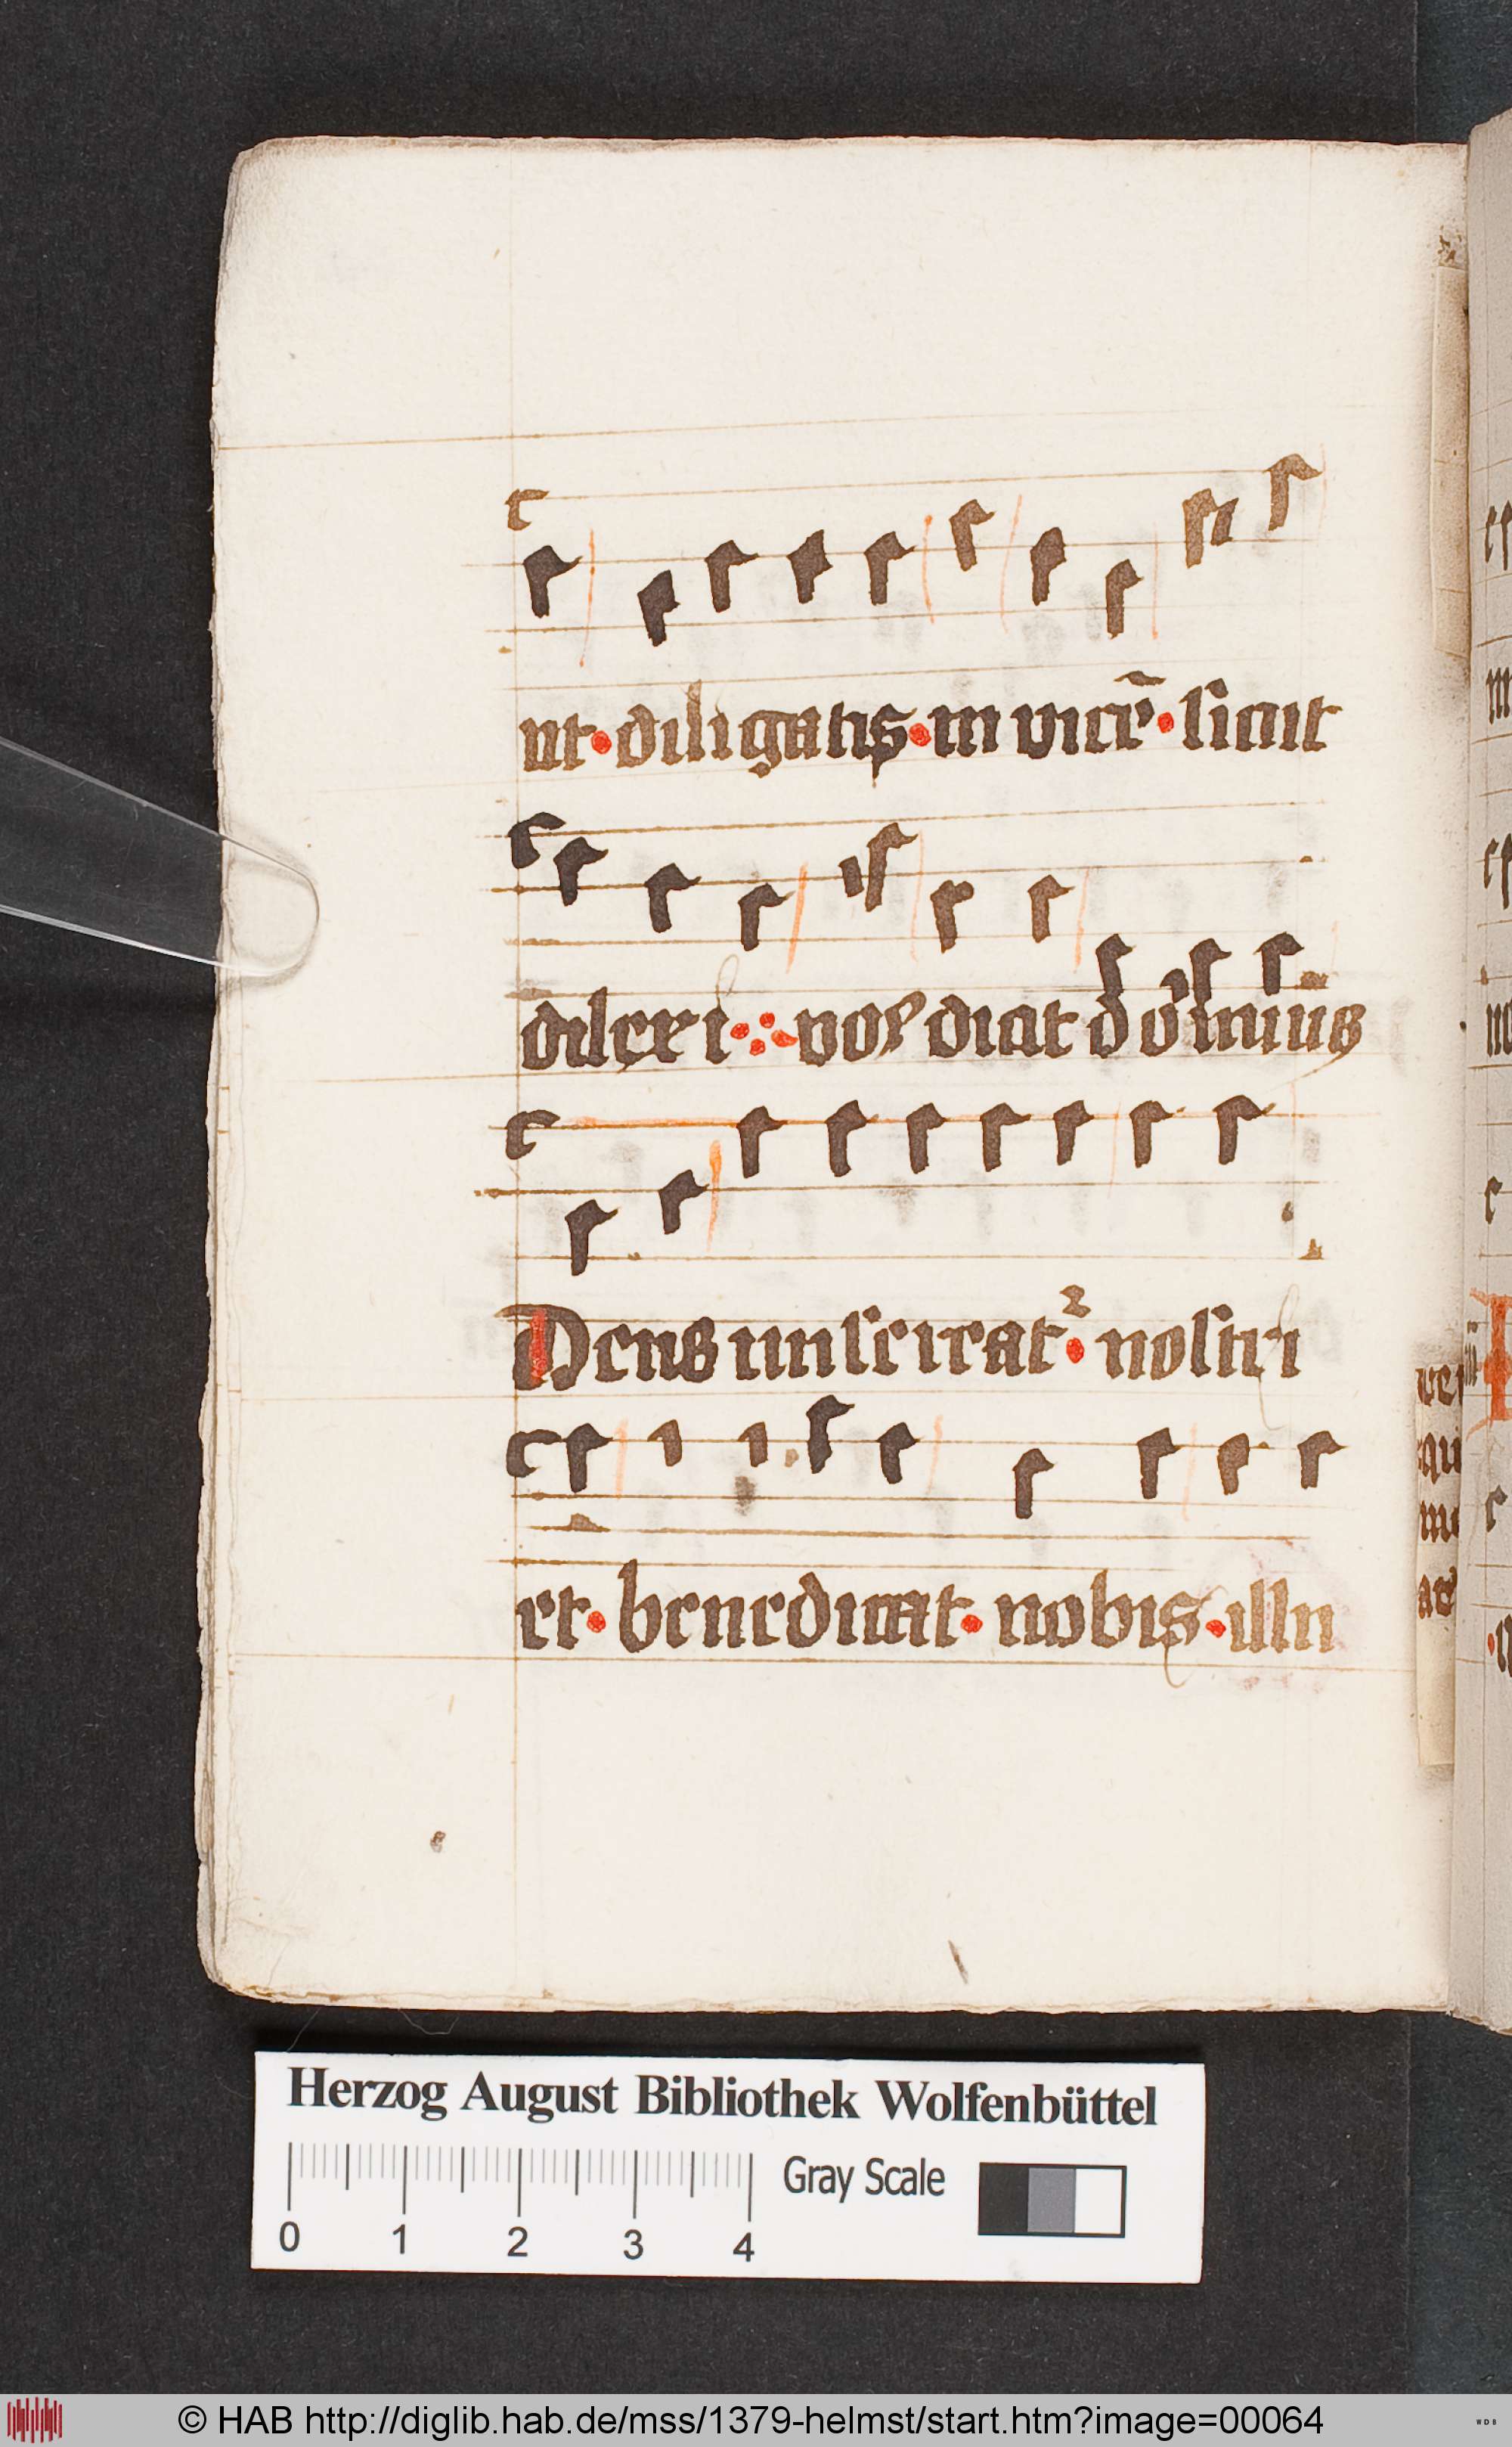 ut diligatis in vicē sicut
dilexi vos dicit domīus
Deus miscireat² nostri
et benedicat nobis illu
Herzog August Bibliothek Wolfenbüttel
Gray Scale
0 1 2 3 4
© HAB http://diglib.hab.de/mss/1379-helmst/start.htm?image=00064